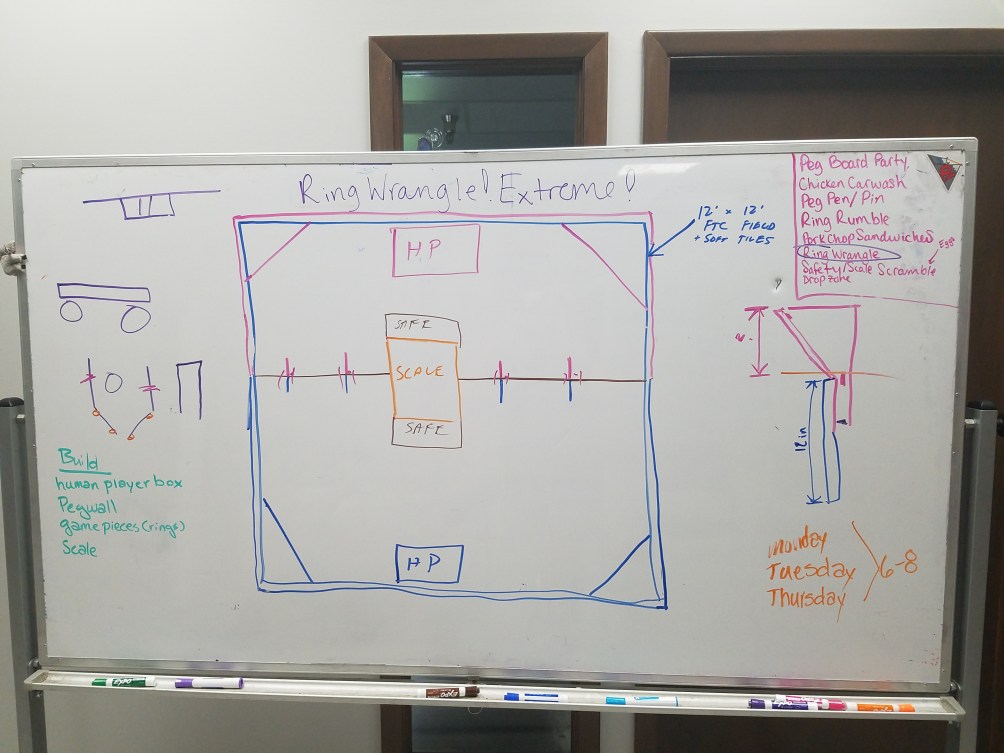 Ring Wrangle! Extreme!
Peg Board Party,
Chicken Carwash
Peg Pen/Pin
Ring Rumble
Pork Chop Sandwiches
Ring Wrangle
Egg
Safety/Scale Scramble
Drop zone
12' × 12'
FTC FIELD
+ SOFT TILES
HP
SAFE
SCALE
SAFE
HP
12in
Build
human player box
Pegwall
game pieces (rings)
Scale
Monday
Tuesday
Thursday
6-8